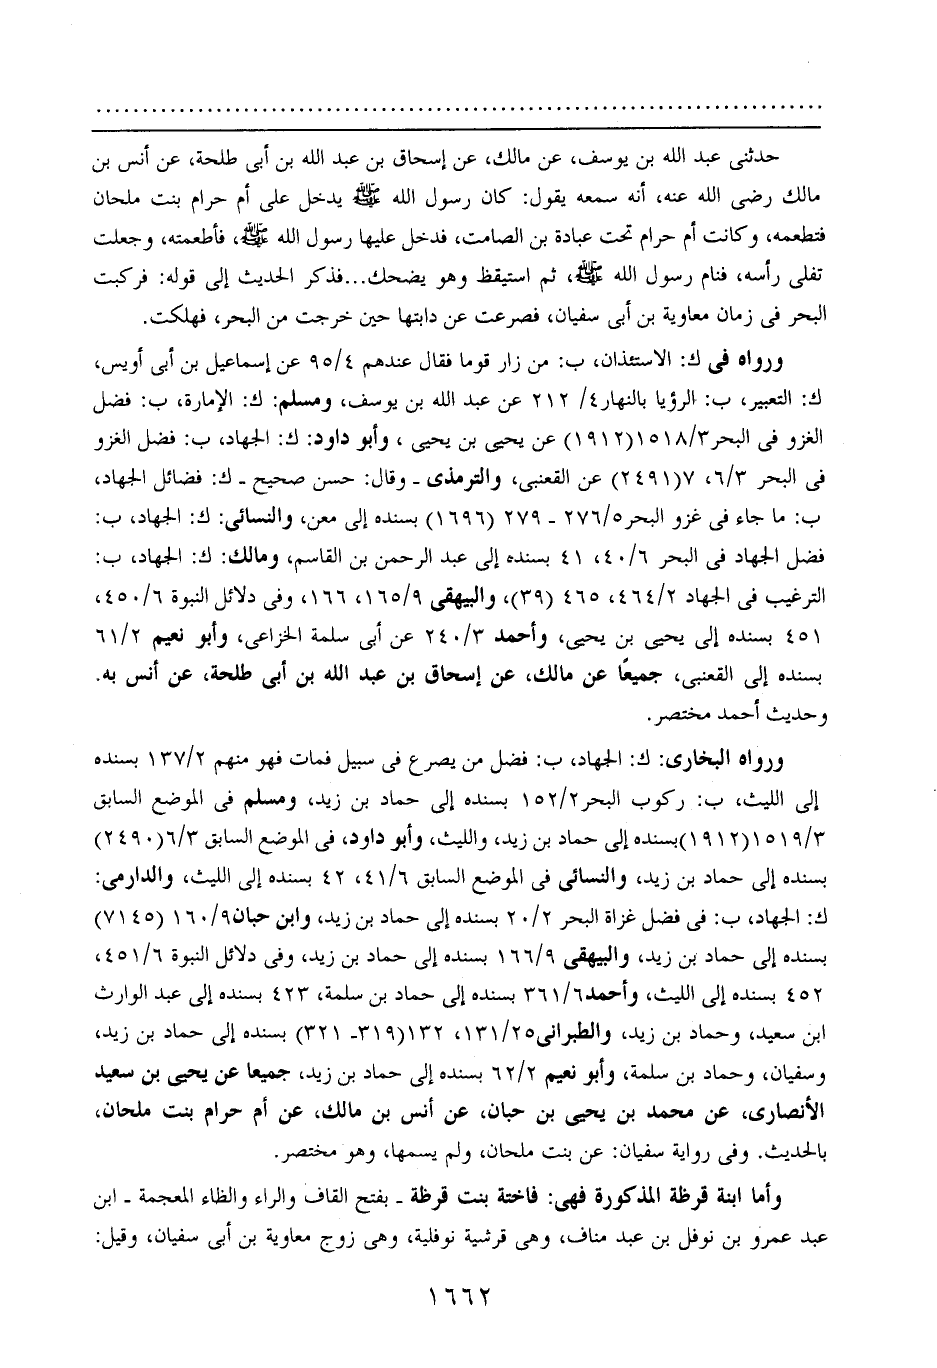 حدثنى عبد الله بن يوسف، عن مالك، عن إسحاق بن عبد الله بن أبى طلحة، عن أنس بن
مالك رضى الله عنه، أنه سمعه يقول: كان رسول الله ﷺ يدخل على أم حرام بنت ملحان
فتطعمه، وكانت أم حرام تحت عبادة بن الصامت، فدخل عليها رسول الله ﷺ، فأطعمته، وجعلت
تفلى رأسه، فنام رسول الله ﷺ، ثم استيقظ وهو يضحك...فذكر الحديث إلى قوله: فركبت
البحر فى زمان معاوية بن أبى سفيان، فصرعت عن دابتها حين خرجت من البحر، فهلكت.
ورواه فى ك: الاستئذان، ب: من زار قوما فقال عندهم ٩٥/٤ عن إسماعيل بن أبى أويس،
ك: التعبير، ب: الرؤيا بالنهار٤/ ٢١٢ عن عبد الله بن يوسف، ومسلم: ك: الإمارة، ب: فضل
الغزو فى البحر١٥١٨/٣(١٩١٢) عن يحيى بن يحيى ، وأبو داود: ك: الجهاد، ب: فضل الغزو
فى البحر ٦/٣، ٧(٢٤٩١) عن القعنبى، والترمذى ـ وقال: حسن صحيح ـ ك: فضائل الجهاد،
ب: ما جاء فى غزو البحر٢٧٦/٥ ـ ٢٧٩ (١٦٩٦) بسنده إلى معن، والنسائى: ك: الجهاد، ب:
فضل الجهاد فى البحر ٤٠/٦، ٤١ بسنده إلى عبد الرحمن بن القاسم، ومالك: ك: الجهاد، ب:
الترغيب فى الجهاد ٤٦٤/٢، ٤٦٥ (٣٩)، والبيهقى ١٦٥/٩، ١٦٦، وفى دلائل النبوة ٤٥٠/٦،
٤٥١ بسنده إلى يحيى بن يحيى، وأحمد ٢٤٠/٣ عن أبى سلمة الخزاعى، وأبو نعيم ٦١/٢
بسنده إلى القعنبى، جميعًا عن مالك، عن إسحاق بن عبد الله بن أبى طلحة، عن أنس به.
وحديث أحمد مختصر.
ورواه البخارى: ك: الجهاد، ب: فضل من يصرع فى سبيل فمات فهو منهم ١٣٧/٢ بسنده
إلى الليث، ب: ركوب البحر١٥٢/٢ بسنده إلى حماد بن زيد، ومسلم فى الموضع السابق
١٥١٩/٣(١٩١٢)بسنده إلى حماد بن زيد، والليث، وأبو داود، فى الموضع السابق ٦/٣(٢٤٩٠)
بسنده إلى حماد بن زيد، والنسائى فى الموضع السابق ٤١/٦، ٤٢ بسنده إلى الليث، والدارمى:
ك: الجهاد، ب: فى فضل غزاة البحر ٢٠/٢ بسنده إلى حماد بن زيد، وابن حبان١٦٠/٩ (٧١٤٥)
بسنده إلى حماد بن زيد، والبيهقى ١٦٦/٩ بسنده إلى حماد بن زيد، وفى دلائل النبوة ٤٥١/٦،
٤٥٢ بسنده إلى الليث، وأحمد٣٦١/٦ بسنده إلى حماد بن سلمة، ٤٢٣ بسنده إلى عبد الوارث
ابن سعيد، وحماد بن زيد، والطبرانى١٣١/٢٥، ١٣٢(٣١٩ـ ٣٢١) بسنده إلى حماد بن زيد،
وسفيان، وحماد بن سلمة، وأبو نعيم ٦٢/٢ بسنده إلى حماد بن زيد، جميعا عن يحيى بن سعيد
الأنصارى، عن محمد بن يحيى بن حبان، عن أنس بن مالك، عن أم حرام بنت ملحان،
بالحديث. وفى رواية سفيان: عن بنت ملحان، ولم يسمها، وهو مختصر.
وأما ابنة قرظة المذكورة فهى: فاختة بنت قرظة ـ بفتح القاف والراء والظاء المعجمة ـ ابن
عبد عمرو بن نوفل بن عبد مناف، وهى قرشية نوفلية، وهى زوج معاوية بن أبى سفيان، وقيل:
١٦٦٢